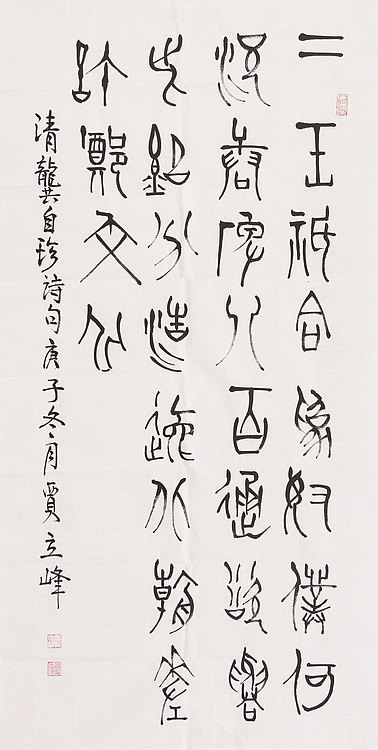 二王祇合為奴僕何
況唐碑八百通欲與
此銘分浩逸北朝差
許鄭文公
清龔自珍詩句庚子冬月賈立峰